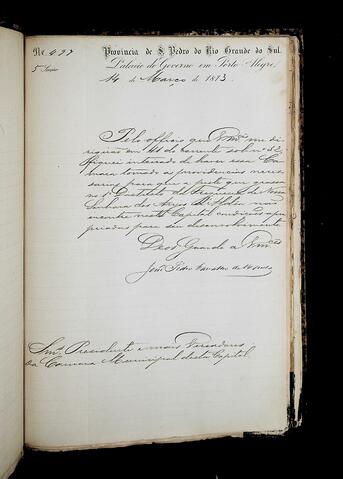 Nº 427 Provincia de S. Pedro do Rio Grande do Sul.
5ª Secção Palacio do Governo em Porto Alegre,
14 de Março de 1873.
Pelo officio que Vmcês me di-
rigirão em 11 do corrente sob nº 32,
fiquei inteirado de haver essa Ca-
mara tomado as providencias neces-
sarias para que a peste que grassa
no 1º Districto da Freguezia de Nossa
Senhora dos Anjos d'Aldea não
encontre nesta Capital condições apro-
priadas para seu desenvolvimento.
Deos Guarde a Vmcês
José Pedro
Snrs. Presidente e mais Vereadores
da Camara Municipal desta Capital.